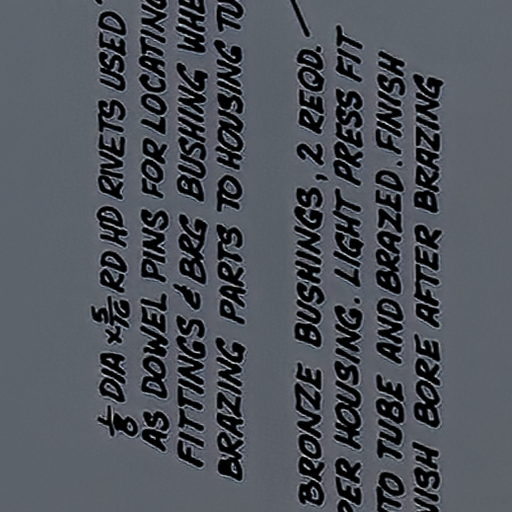 1/8 DIA x 5/16 RD HD RIVETS USED
AS DOWEL PINS FOR LOCATING
FITTINGS & BRG BUSHING WHE
BRAZING PARTS TO HOUSING TU
BRONZE BUSHINGS, 2 REQD.
PER HOUSING. LIGHT PRESS FIT
TO TUBE AND BRAZED. FINISH
NISH BORE AFTER BRAZING